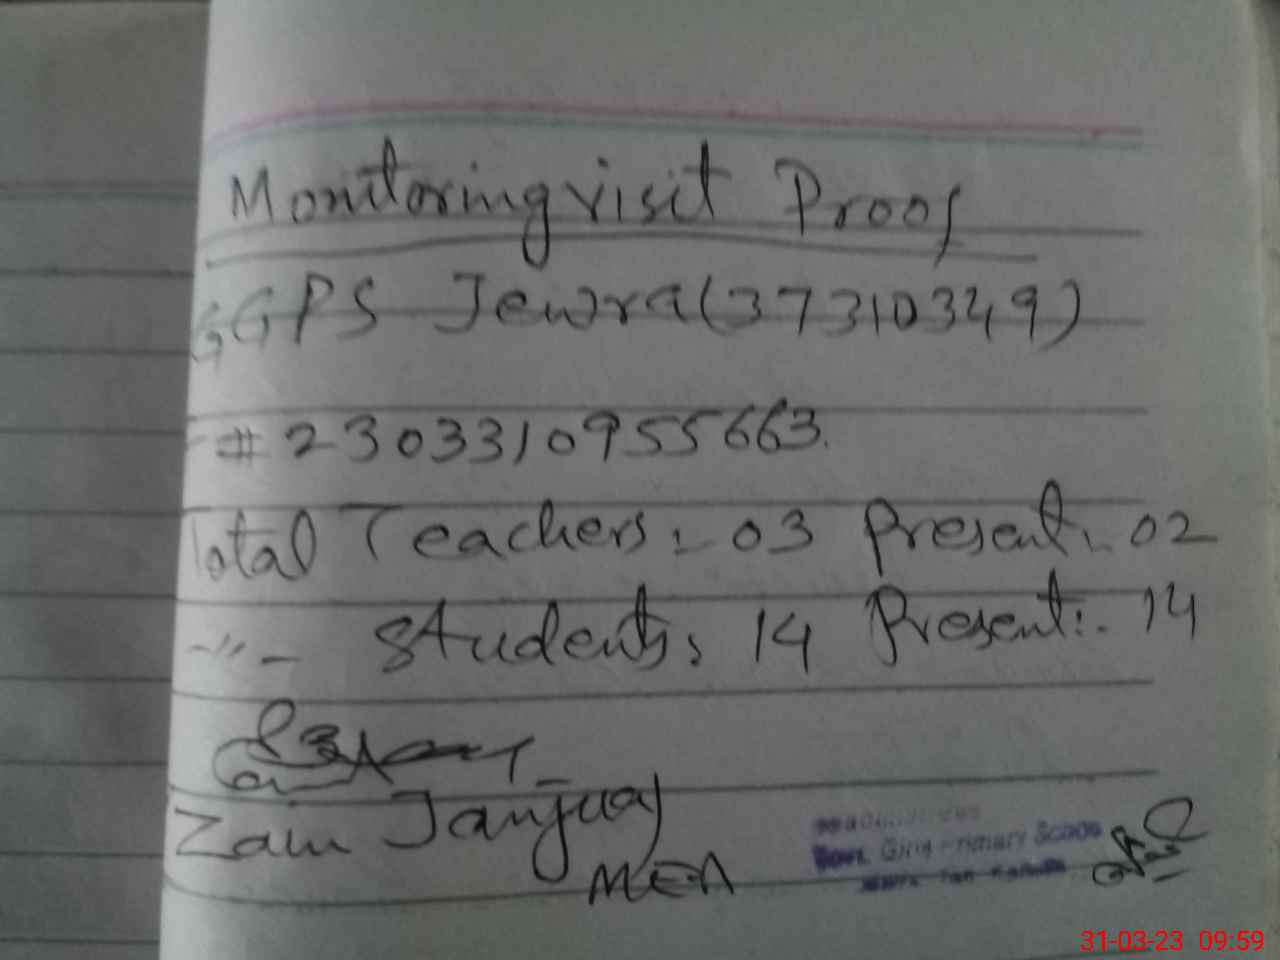 Monitoring visit Proof
GGPS Jewra (37310349)
F # 2303310955663.
Total Teachers:- 03 Present:- 02
-"- Students: 14 Present:- 14
Zain Janjua
MEA
Headmistress
Govt. Girls Primary School
31-03-23 09:59